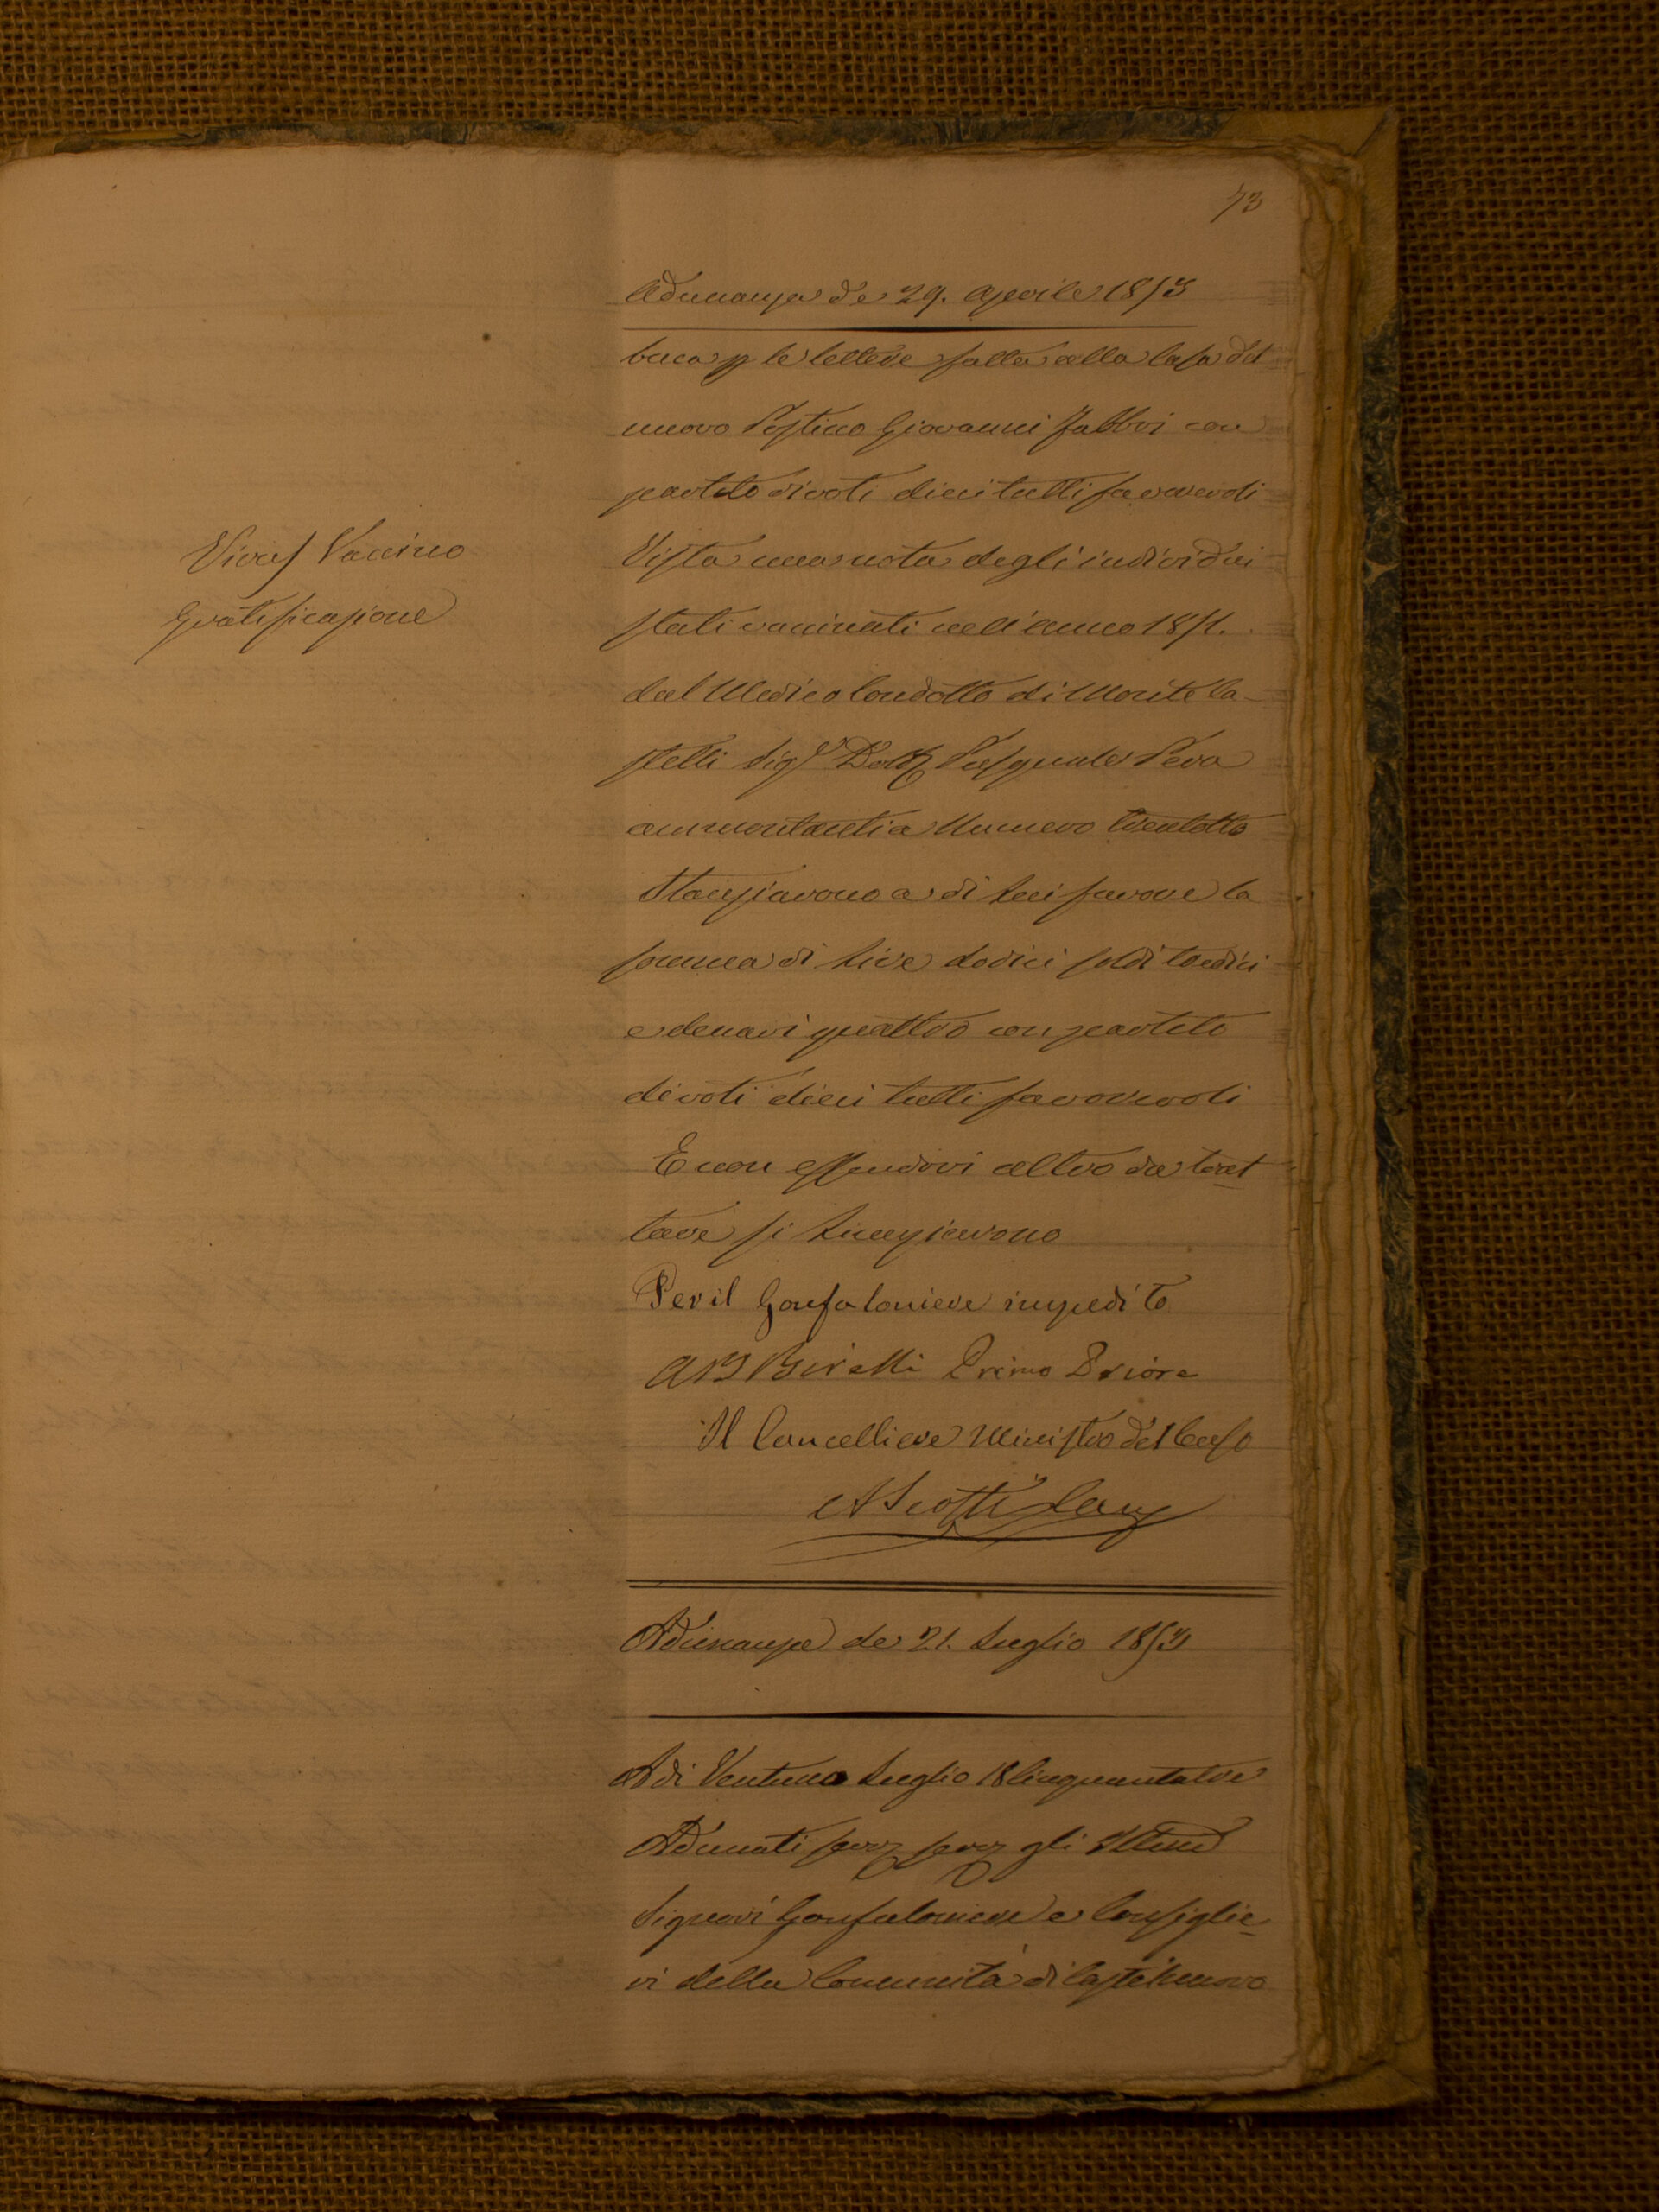 73
Adunanza de 29. Aprile 1853
buca p le lettere fatta alla Casa del
nuovo Postino Giovanni Fabbri con
partito di voti dieci tutti favorevoli
Virus Vaccino
Gratificazione
Vista una nota degli individui
stati vaccinati nell'anno 1851.
dal Medico Condotto di Monte Ca-
stelli Sigr Dott Pasquale Pera
ammontanti a Numero trentotto
Stanziarono a di Lui favore la
somma di Lire dodici soldi tredici
e denari quattro con partito
di voti dieci tutti favorevoli
E non essendovi altro da trat
tare si Licenziarono
Per il Gonfaloniere impedito
Primo Priore
Il Cancelliere Ministro del Censo
A Scotti Canc
Adunanza de 21. Luglio 1853
A di Ventuno Luglio 18Cinquantatre
Adunati serv serv gli Illmi
Signori Gonfaloniere e Consiglie-
ri della Comunità di Castelnuovo